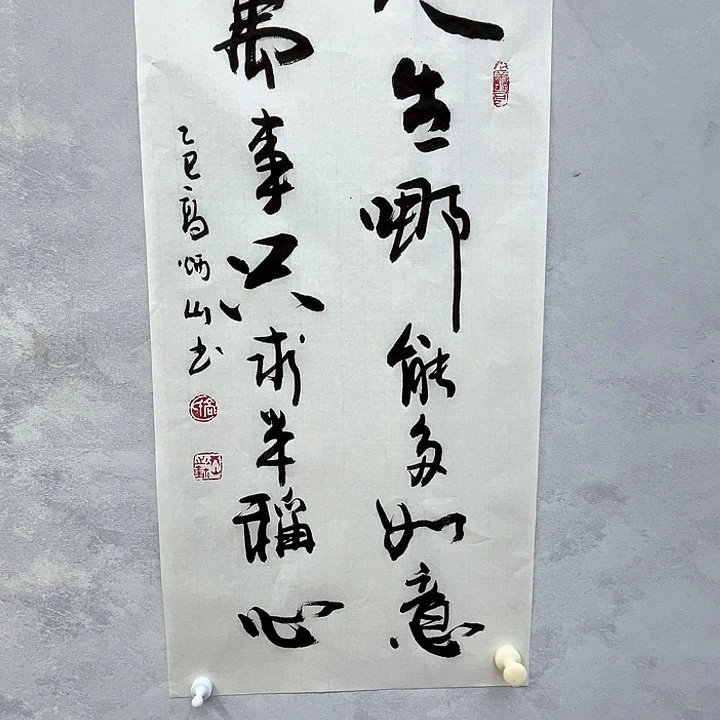 人生哪能多如意
萬事只求半稱心
乙巳高炳山书